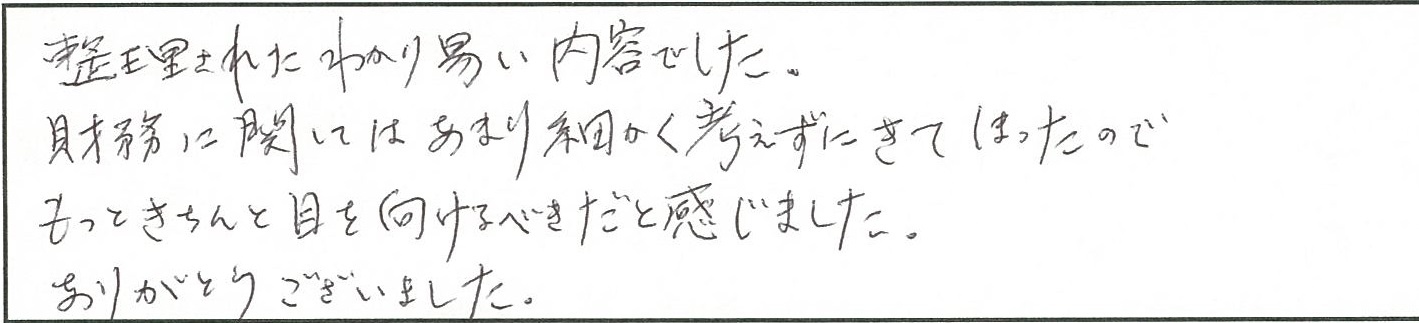 整理された わかり易い 内容でした。
財務に関しては あまり細かく考えずに きて しまったので
もっときちんと目を向けるべきだと感じました。
ありがとう ございました。